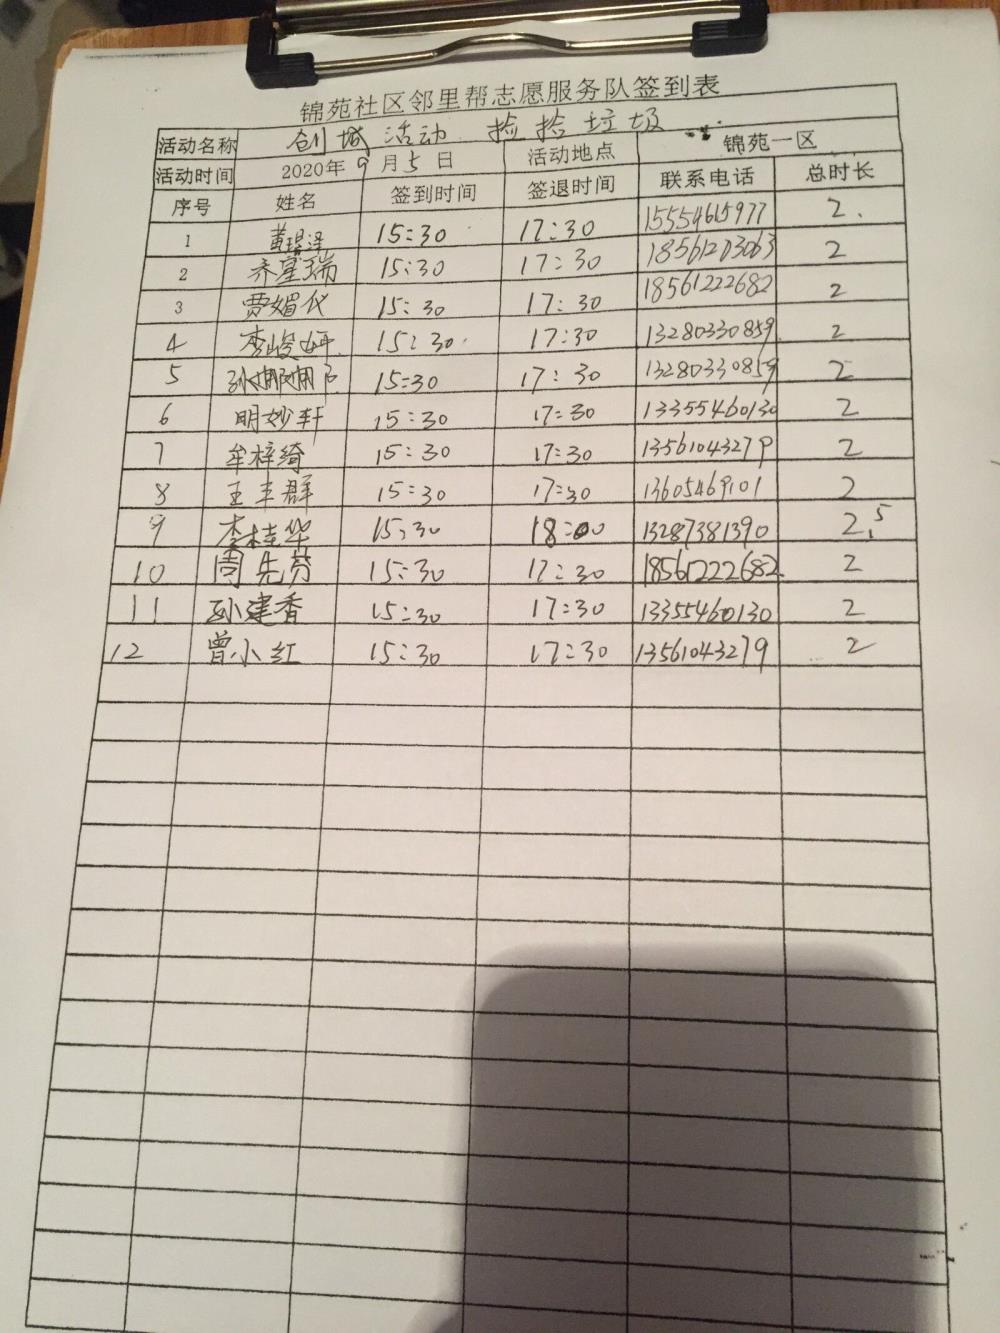 锦苑社区邻里帮志愿服务队签到表
活动名称 创城活动 捡拾垃圾
活动时间 2020年9月5日 活动地点 锦苑一区
序号 姓名 签到时间 签退时间 联系电话 总时长
1 黄 泽 15:30 17:30 15554615977 2.
2 齐 瑞 15:30 17:30 18561203063 2
3 贾媚仪 15:30 17:30 18561222682 2
4 李峻 15:30 17:30 13280330859 2
5 孙 15:30 17:30 13280330859 2
6 明妙轩 15:30 17:30 13355460130 2
7 牟梓绮 15:30 17:30 13561043279 2
8 王丰群 15:30 17:30 13605469101 2
9 李桂华 15:30 18:00 13287381390 2.5
10 周先芬 15:30 17:30 18561222682. 2
11 孙建香 15:30 17:30 13355460130 2
12 曾小红 15:30 17:30 13561043279 2